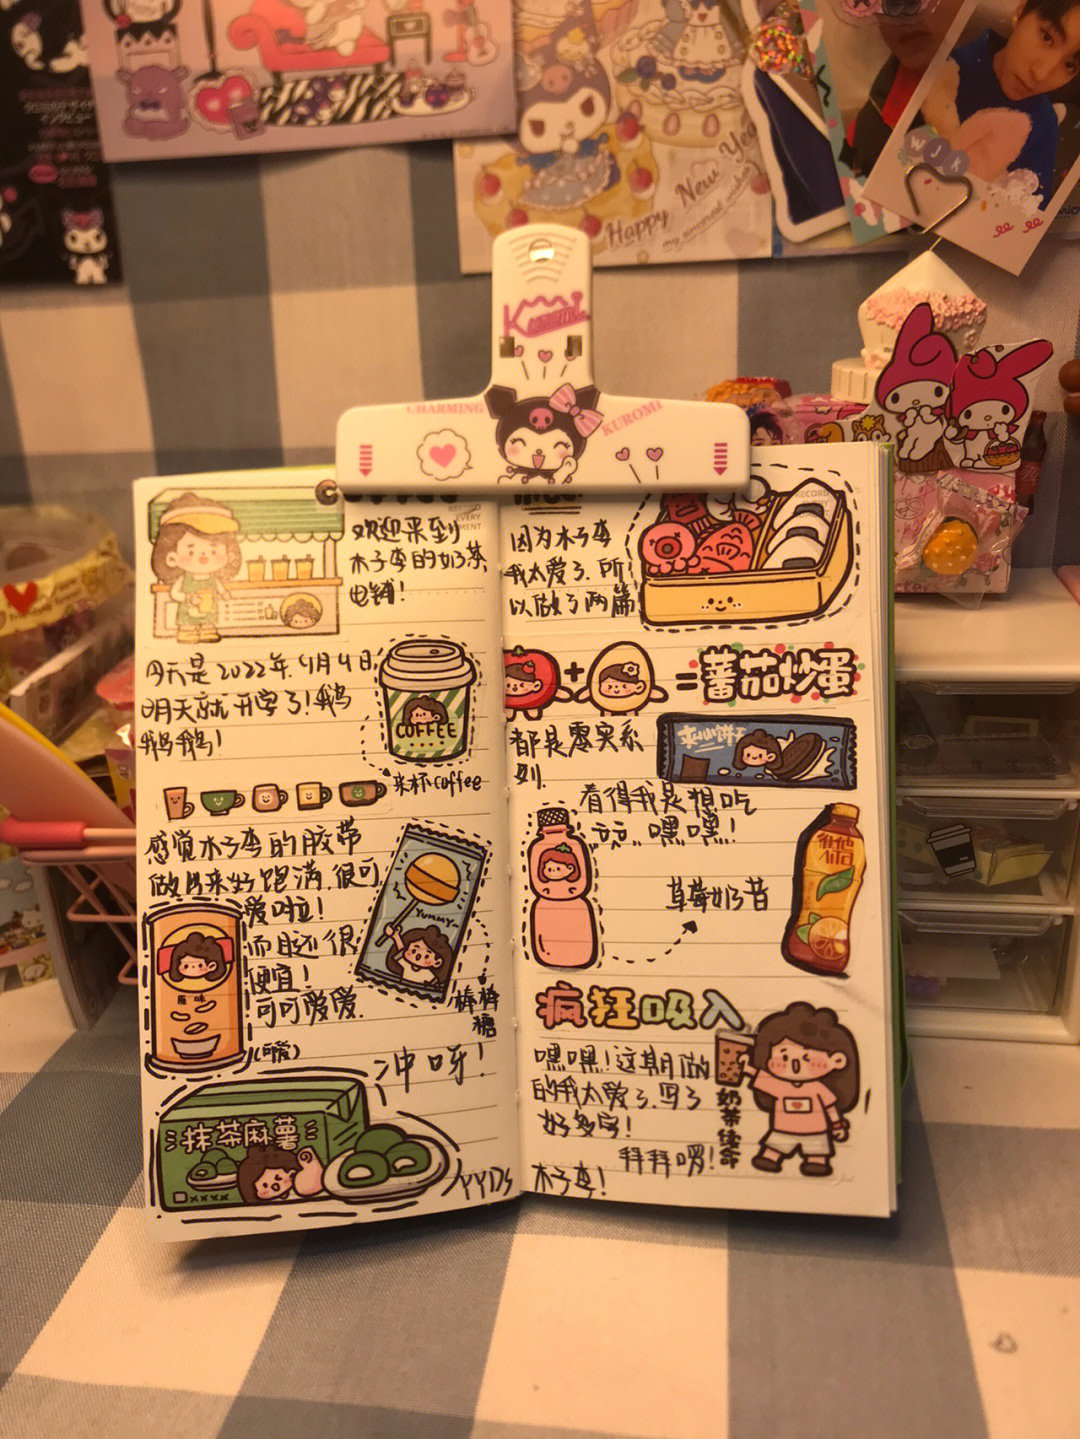 Happy New Year
my sincerest wishes
W J K
Kuromi
CHARMING
KUROMI
欢迎来到
木子李的奶茶
电铺!
今天是2022年.4月4日
明天就开学了!鹅
鹅鹅!
COFFEE
来杯coffee
感觉木子李的胶带
做出来好跑满,很可
爱啦!
而且还很
便宜!
可可爱爱.
(可爱)
原味
YUMMY~
棒棒
糖
冲呀!
抹茶麻薯
XXXX
YYDS
RECORD
因为木子李
我太爱了.所
以做了两篇
+
=蕃茄炒蛋
都是零实系
列.
夹心饼干
看得我是想吃
亢亢..嘿嘿!
草莓奶昔
维他
疯狂吸入
嘿嘿!这期做
的我太爱了.写了
好多字!
拜拜啰!
木子李!
奶茶续命